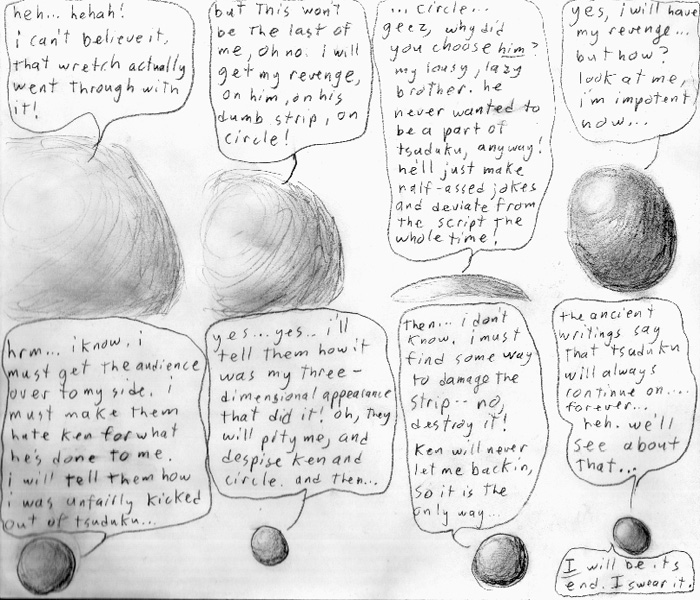 heh... hehah!
i can't believe it,
that wretch actually
went through with
it!
but this won't
be the last of
me, oh no. i will
get my revenge,
on him, on his
dumb strip, on
circle!
... circle...
geez, why did
you choose him?
my lousy, lazy
brother. he
never wanted to
be a part of
tsuduku, anyway!
he'll just make
half-assed jokes
and deviate from
the script the
whole time!
yes, i will have
my revenge...
but how?
look at me,
i'm impotent
now...
hrm... i know. i
must get the audience
over to my side. i
must make them
hate ken for what
he's done to me.
i will tell them how
i was unfairly kicked
out of tsuduku...
yes... yes... i'll
tell them how it
was my three-
dimensional appearance
that did it! oh, they
will pity me, and
despise ken and
circle. and then...
then... i don't
know. i must
find some way
to damage the
strip -- no,
destroy it!
ken will never
let me back in,
so it is the
only way...
the ancient
writings say
that tsuduku
will always
continue on...
forever...
heh. we'll
see about
that...
I will be its
end. I swear it.